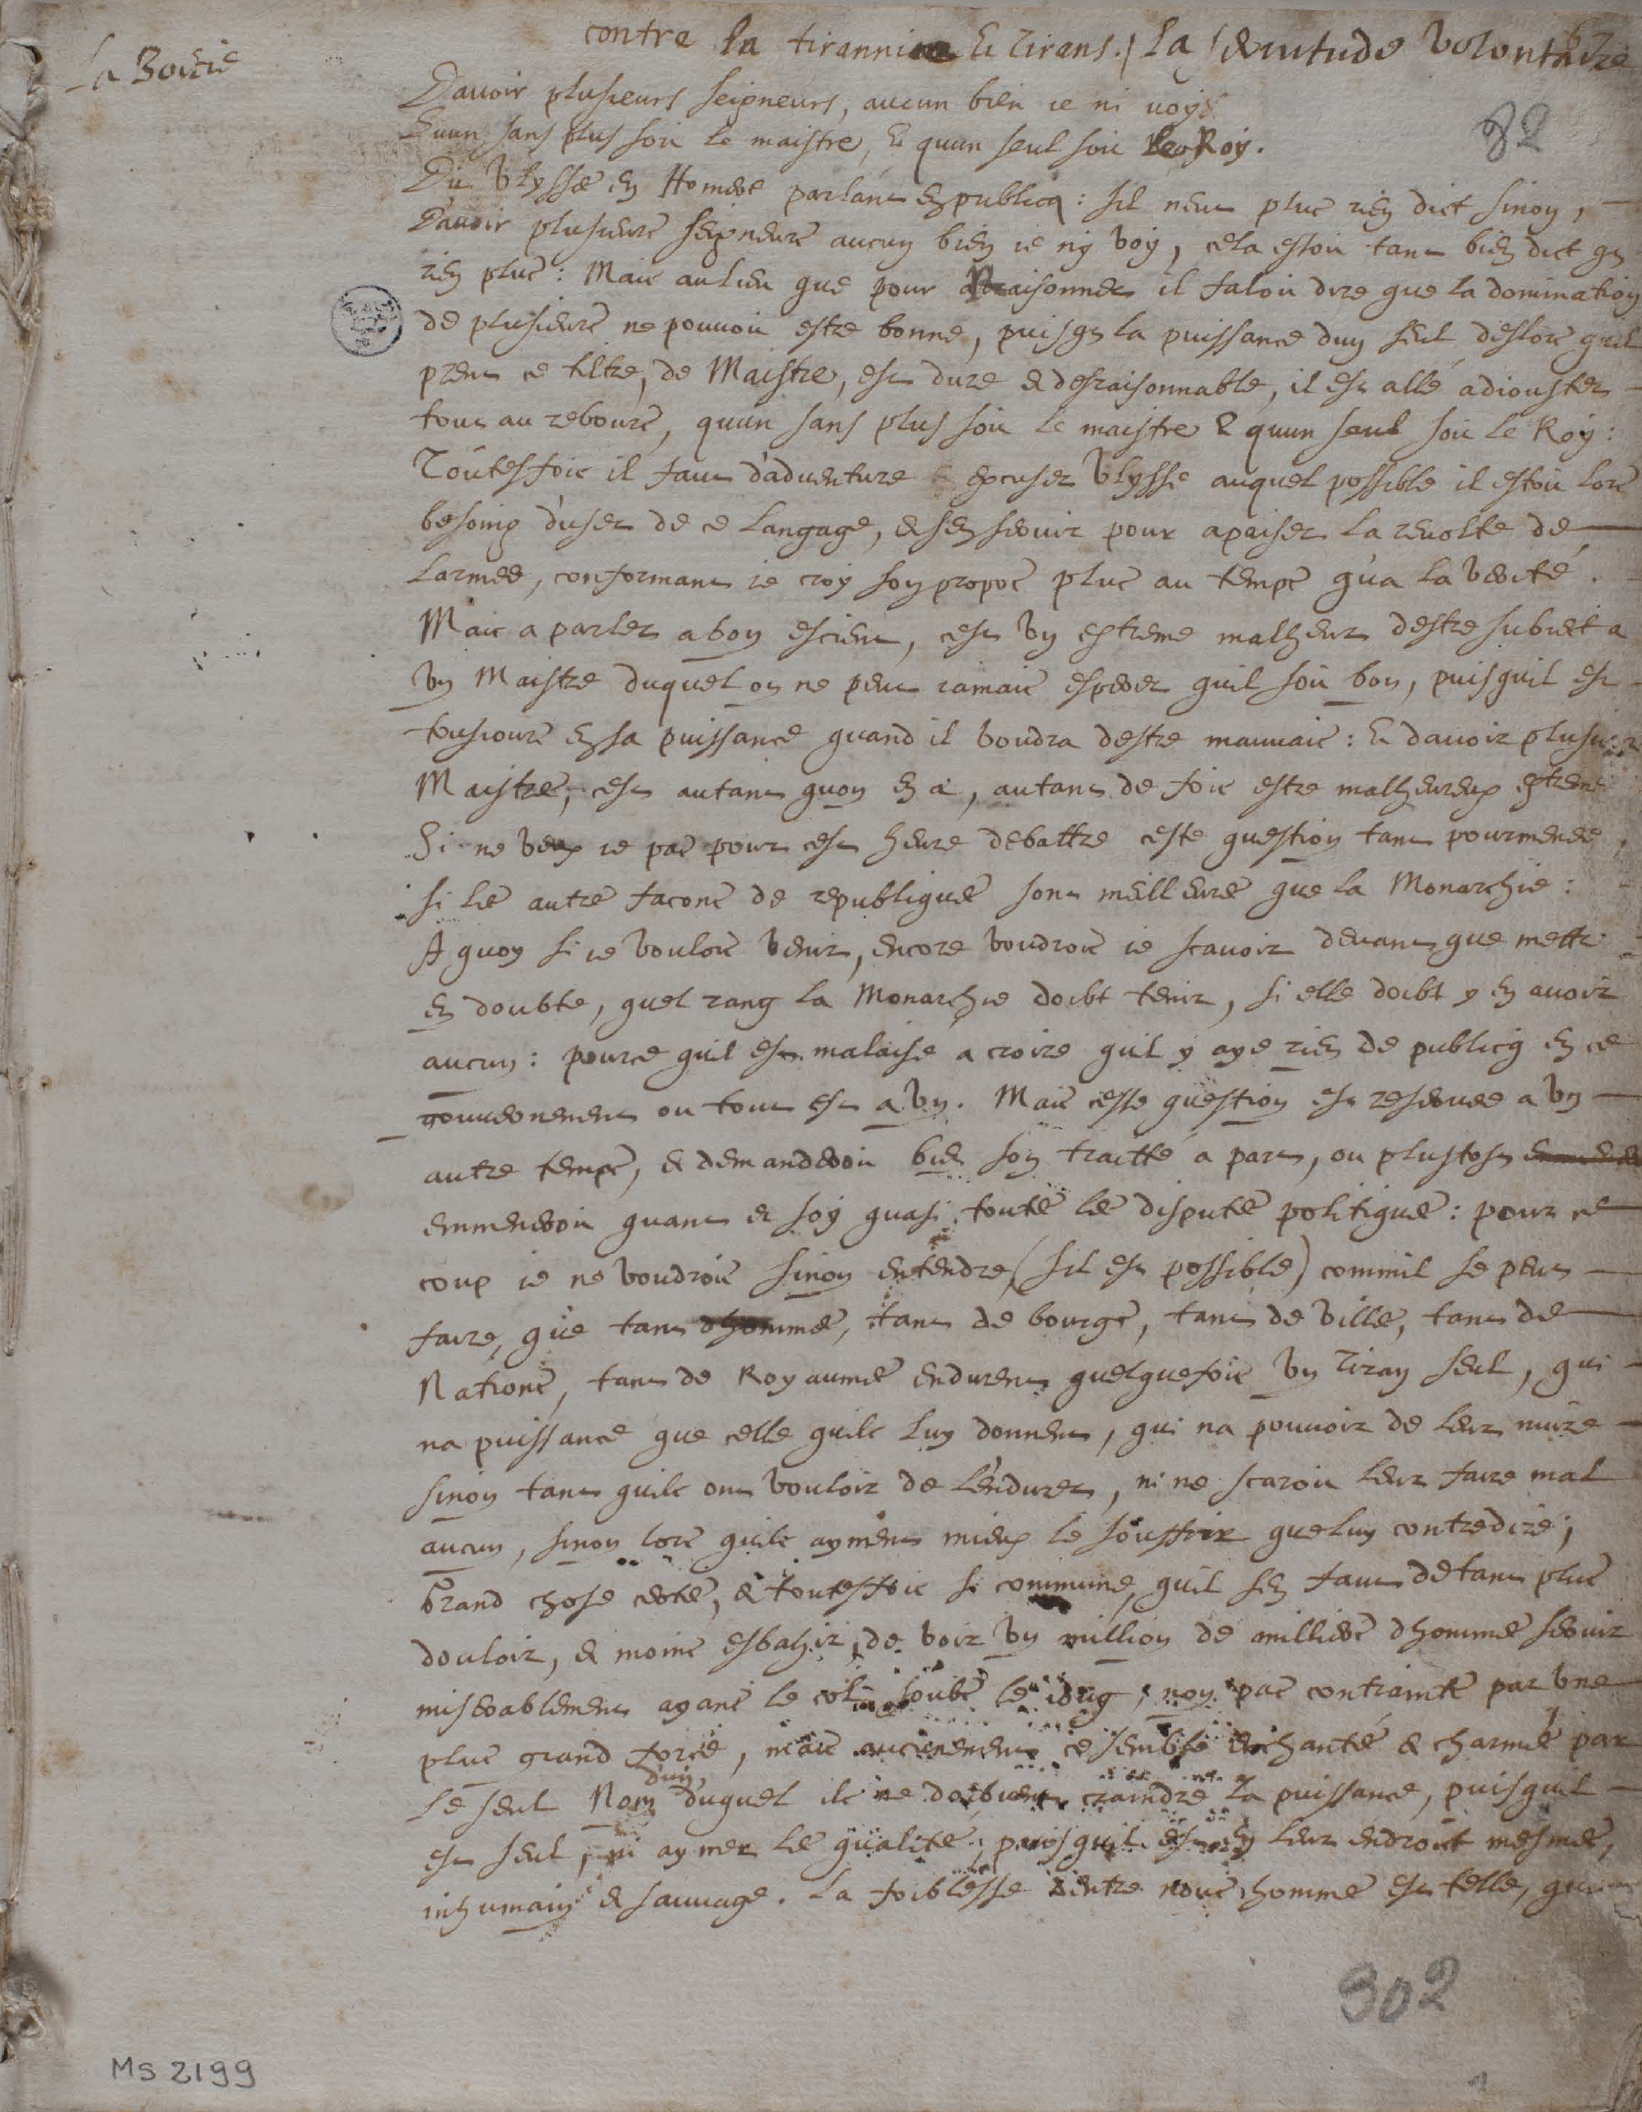 contre la tirannie Et Tirans. / La servitude volontaire
La Boitie
D'auoir plusieurs seigneurs, aucun bien ie ni uoys
Quun sans plus soit le maistre, Et quun seul soit le Roy.
82
Dit Vlysse en Homere parlant en publicq : sil neut plus rien dict sinon,
D'auoir plusieurs seigneurs aucun bien ie ny voy, cela estoit tant bien dict que
rien plus : Mais au lieu que pour Raisonner il faloit dire que la domination
de plusieurs ne pouuoit estre bonne, puisque la puissance dun seul deslors quil
prent ce tiltre, de Maistre, est dure & desraisonnable, il est allé adiouster
tout au rebours, quun sans plus soit le maistre & quun seul soit le Roy :
Toutesfois il faut d'aduenture excuser Vlysse auquel possible il estoit lors
besoing d'user de ce langage, & sen seruir pour apaiser la reuolte de
larmee, conformant ie croy son propos plus au temps qu'a la verité.
Mais a parler a bon escient, cest vn extreme malheur destre subiect a
vn Maistre duquel on ne peut iamais esperer quil soit bon, puisquil est
tousiours en sa puissance quand il voudra destre mauuais : Et dauoir plusieurs
Maistres, cest autant quon en a, autant de fois estre malheureux extreme
Si ne veux ie pas pour cest heure debattre ceste question tant pourmenee
si les autres facons de republiques sont meilleures que la Monarchie :
A quoy si ie voulois venir, encore voudrois ie scauoir deuant que mettre
en doubte, quel rang la Monarchie doibt tenir, si elle doibt y en auoir
aucun : pource quil est malaise a croire quil y aye rien de publicq en ce
gouuernement ou tout est a vn. Mais cesse question est reseruee a vn
autre temps, & demanderoit bien son traitté a part, ou plustost
emmeneroit quant et soy quasi toutes les disputes politiques : pour ce
coup ie ne voudrois sinon entendre (sil est possible) commil se peut
faire, que tant dhommes, tant de bourgs, tant de villes, tant de
Nations, tant de Royaumes endurent quelquefois vn Tiran seul, qui
na puissance que celle quils luy donnent, qui na pouuoir de leur nuire
sinon tant quils ont vouloir de l'endurer, ni ne scaroit leur faire mal
aucun, sinon lors quils ayment mieux le souffrir que luy contredire ;
Grand chose certes, & toutesfois si commune, quil sen faut de tant plus
douloir, & moins esbahir, de voir vn million de milliers dhommes seruir
miserablement ayant le col soubs le ioug, non pas contraints par vne
plus grand force, mais aucunement ce semble enchantés & charmés par
Le seul Nom d'un duquel ils ne doibuent craindre la puissance, puisquil
est seul, ni aymer les qualités, puisquil est en leur endroit mesmes,
inhumain & sauuage. La foiblesse dentre nous hommes est telle, que
302
MS 2199